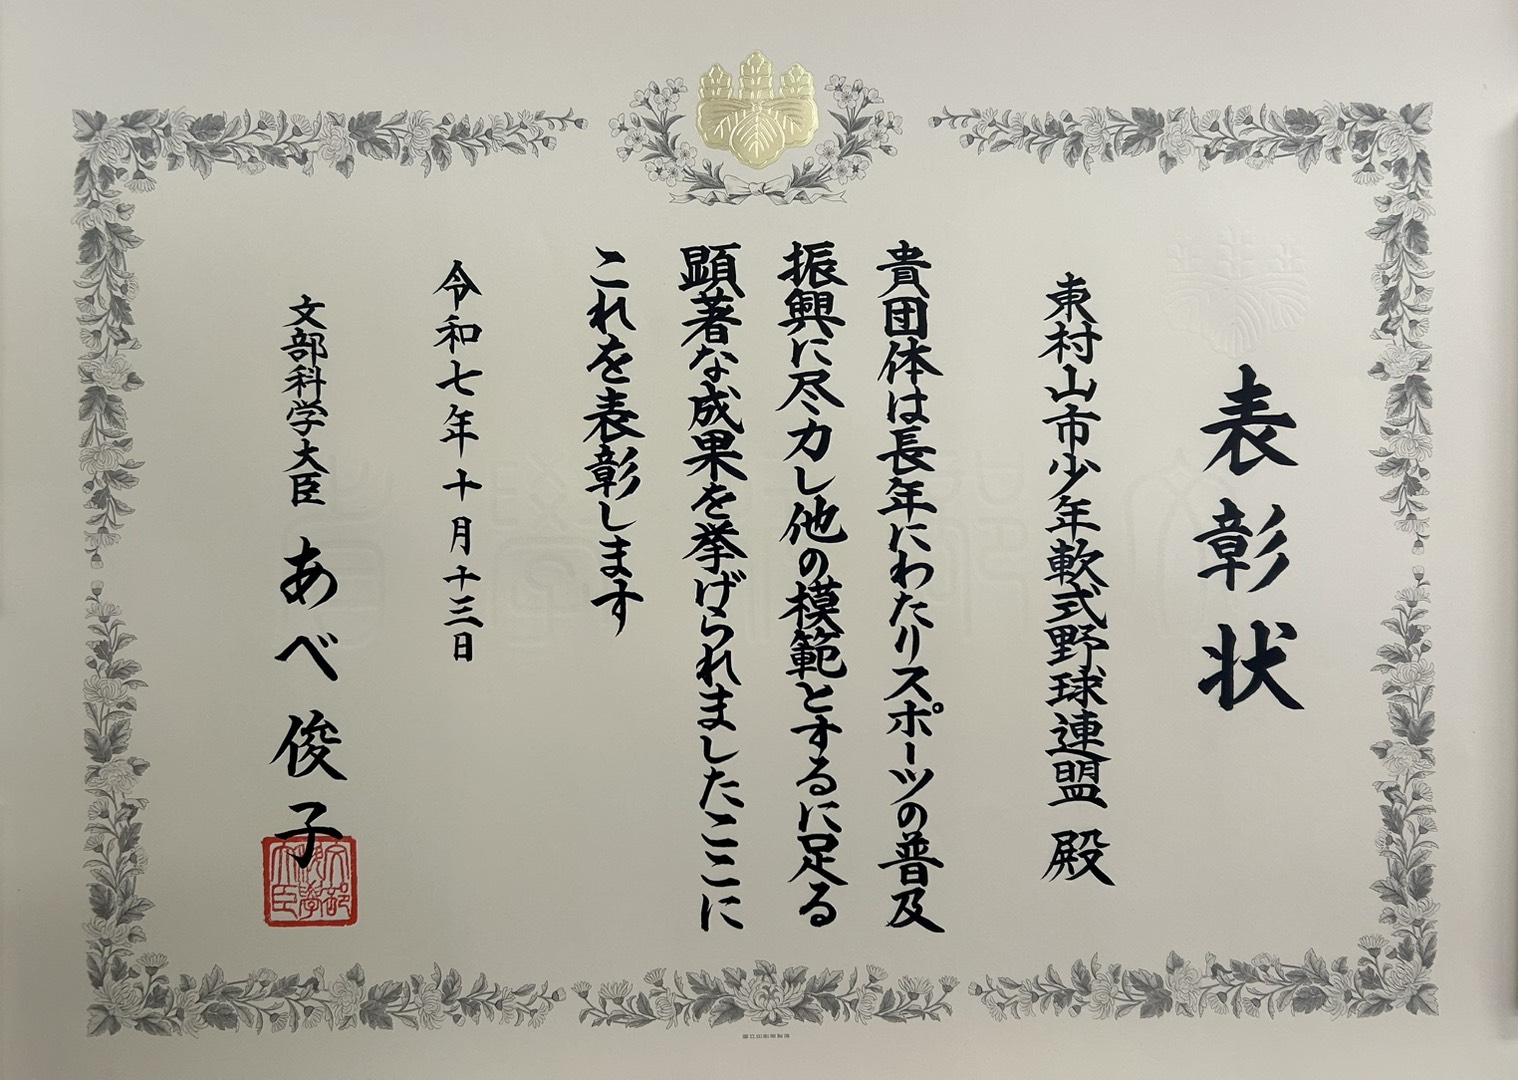 表彰状
東村山市少年軟式野球連盟 殿
貴団体は長年にわたりスポーツの普及
振興に尽力し他の模範とするに足る
顕著な成果を挙げられましたここに
これを表彰します
令和七年十月十三日
文部科学大臣 あべ 俊子
文部科學大臣